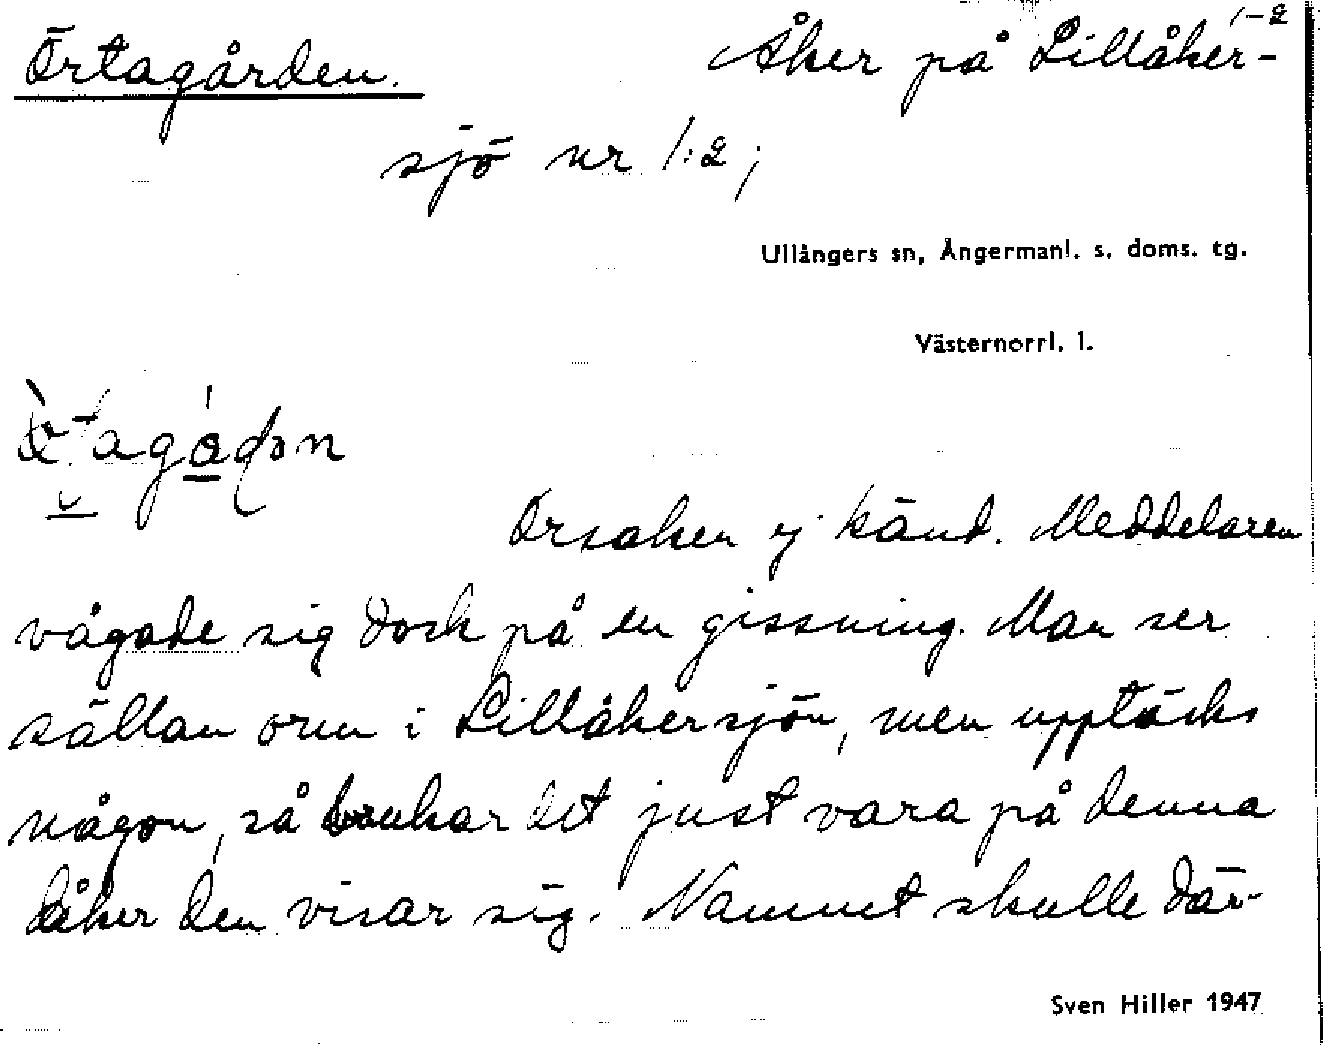 1-2
Örtagården. Åker på Lillåker-
sjö nr 1:2;
Ullångers sn, Ångermanl. s. doms. tg.
Västernorrl. l.
Orsaken ej känd. Meddelaren
vågade sig dock på en gissning. Man ser
sällan orm i Lillåkersjön, men upptäcks
någon, så brukar det just vara på denna
åker den visar sig. Namnet skulle där-
Sven Hiller 1947